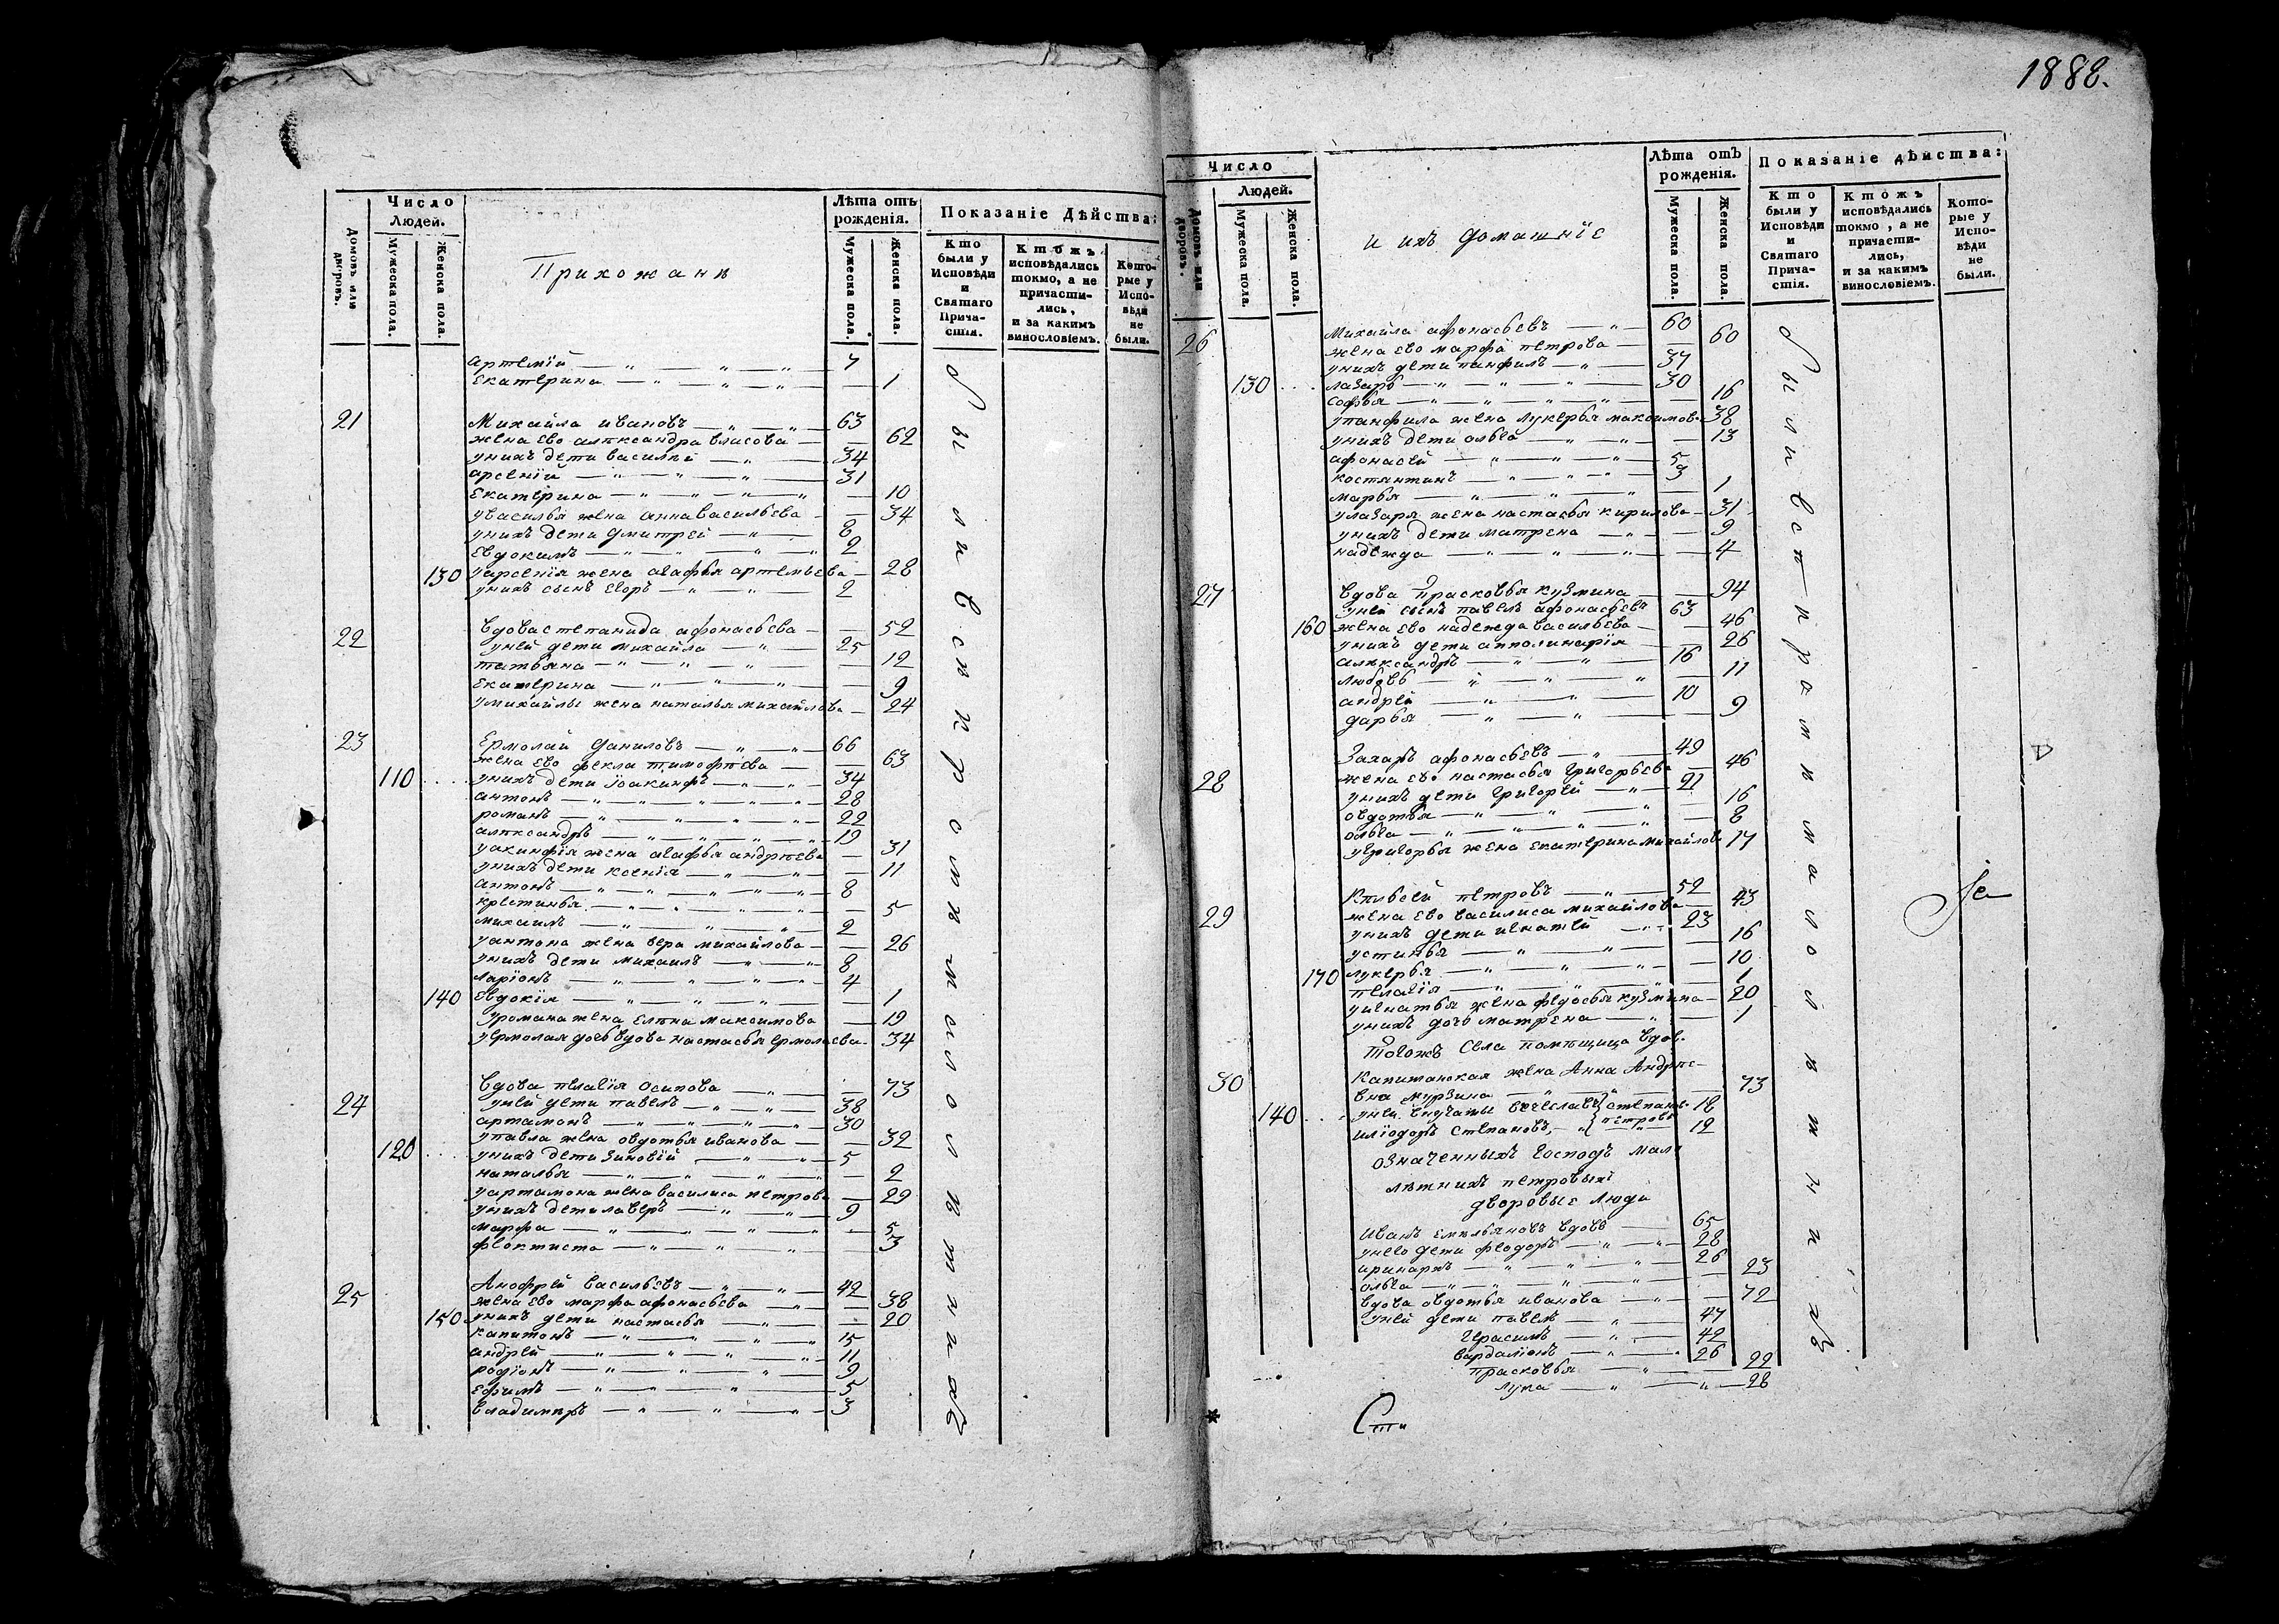 1882.
Число
Людей.
Домовъ или дворовъ.
Мужеска пола.
Женска пола.
Прихожанѣ
Лѣта отъ рожденія.
Мужеска пола.
Женска пола.
Показаніе Дѣйства:
Кто были у Исповѣди и Святаго Прича-стія.
Ктожъ исповѣдались токмо, а не причасти-лись, и за какимъ винословіемъ.
Кото-рые у Испо-вѣди не были.
артемій — „ — „ — „ — 7
екатерина — „ — „ — „ — 1
21 Михайла ивановъ — „ — „ — 63
жена ево алѣксандра власова — 62
унихъ дети василей — „ — 34
арсеній — „ — „ — „ — 31
екатерина — „ — „ — „ — „ — 10
увасилья жена анна васильева — 34
унихъ дети дмитрей — „ — 8
евдокимъ — „ — „ — „ — 2
130 уарсенія жена агафья артемьева — 28
унихъ сынъ егоръ — „ — „ — 2
22 вдова степанида афонасьева — 52
уней дети михайла — „ — 25
татьяна — „ — „ — „ — 12
екатерина — „ — „ — „ — 9
умихайлы жена наталья михайлова — 24
23 Ермолай даниловъ — „ — „ — 66
жена ево фекла тимофѣева — 63
110 унихъ дети іоакинфъ — „ — „ — 34
антонъ — „ — „ — „ — „ — 28
романъ — „ — „ — „ — „ — 22
алѣксандръ — „ — „ — „ — „ — 19
уакинфія жена агафья андрѣева — 31
унихъ дети ксенія — „ — „ — 11
антонъ — „ — „ — „ — „ — 8
крестинья — „ — „ — „ — „ — 5
михаилъ — „ — „ — „ — 2
уантона жена вера михайлова — 26
унихъ дети михаилъ — „ — „ — 8
ларіонъ — „ — „ — „ — „ — 4
140 евдокія — „ — „ — „ — 1
уромана жена елѣна максимова — 19
уермолая дочь вдова настасья ермолаева — 34
24 вдова пелагія осипова — „ — 73
уней дети павелъ — „ — „ — 38
артамонъ — „ — „ — „ — „ — 30
упавла жена овдотья иванова — 32
120 унихъ дети зиновій — „ — „ — 5
наталья — „ — „ — „ — „ — 2
уартамона жена василиса петрова — 29
унихъ дети лаверъ — „ — „ — 9
марфа — „ — „ — „ — „ — 5
феоктиста — „ — „ — „ — 3
25 Анофрей васильевъ — „ — „ — 42
жена ево марфа афонасьева — „ — 38
150 унихъ дети настасья — „ — 20
капитонъ — „ — „ — „ — „ — 15
андрей — „ — „ — „ — „ — 11
родіонъ — „ — „ — „ — „ — 9
ефимъ — „ — „ — „ — 5
владимиръ — „ — „ — „ — 3
были всѣ просты малолѣтних
Число
Людей.
Домовъ или дворовъ.
Мужеска пола.
Женска пола.
и ихъ домашніе
Лѣта отъ рожденія.
Мужеска пола.
Женска пола.
Показаніе дѣйства:
Кто были у Исповѣди и Святаго Прича-стія.
Ктожъ исповѣдались токмо, а не причасти-лись, и за какимъ винословіемъ.
Кото-рые у Испо-вѣди не были.
26 Михайла афонасьевъ — „ — 60
жена ево марфа петрова — 60
унихъ дети панфилъ — „ — 37
130 лазарь — „ — „ — „ — „ — 30
софья — „ — „ — „ — „ — 16
упанфила жена лукерья максимова — 38
унихъ дети ольга — „ — „ — 13
афонасей — „ — „ — „ — 5
костянтинъ — „ — „ — „ — 3
марья — „ — „ — „ — 1
улазаря жена настасья кирилова — 31
унихъ дети матрена — „ — 9
надежда — „ — „ — „ — 4
27 вдова прасковья кузмина — 94
уней сынъ павелъ афонасьевъ 63
160 жена ево надежда васильева — 46
унихъ дети апполинарія — 26
алѣксандръ — „ — „ — 16
любовь — „ — „ — „ — 11
андрей — „ — „ — 10
дарья — „ — „ — 9
28 Захаръ афонасьевъ — „ — 49
жена ево настасья григорьева — 46
унихъ дети григорей — „ — 21
овдотья — „ — „ — „ — 16
ольга — „ — „ — „ — „ — 8
угригорья жена екатерина михайлов 17
29 петровъ — „ — 52
жена ево василиса михайлова — 43
унихъ дети игнатей — „ — 23
устинья — „ — „ — 16
170 лукерья — „ — „ — „ — 10
пелагія — „ — „ — „ — 1
уигнатья жена федосья кузмина — 20
унихъ дочь матрена — „ — 1
Тогожъ села помѣщица вдов.
30 Капитанская жена Анна Андрѣе-
вна мурзина — „ — „ — 73
140 уней внучаты вечеславъ степановъ 18
иліодоръ степановъ — „ петровы 12
означенныхъ господъ мал.
лѣтнихъ петровыхъ
дворовые люди
Иванъ емельяновъ вдовъ — 65
унего дети феодоръ — „ — „ — 28
иринархъ — „ — „ — „ — 26
ольга — „ — „ — „ — „ — 23
вдова овдотья иванова — „ — 72
уней дети павелъ — „ — 47
герасимъ — „ — 42
варламонъ — „ — 26
прасковья — „ — 22
лука — „ — „ — 28